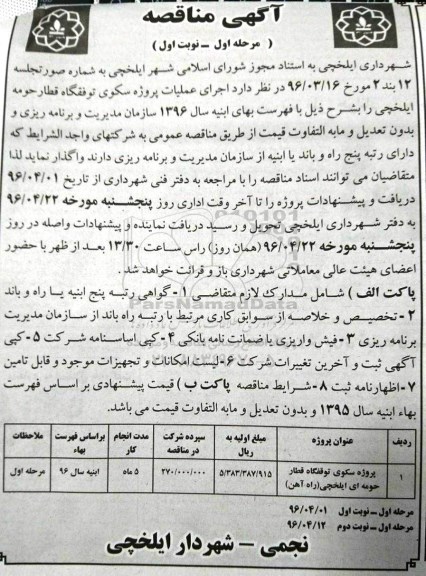 آگهی مناقصه
( مرحله اول – نوبت اول )
شهرداری ایلخچی به استناد مجوز شورای اسلامی شهر ایلخچی به شماره صورتجلسه
۱۲ بند ۲ مورخ ۹۶/۰۳/۱۶ در نظر دارد اجرای عملیات پروژه سکوی توقفگاه قطار حومه
ایلخچی را بشرح ذیل با فهرست بهای ابنیه سال ۱۳۹۶ سازمان مدیریت و برنامه ریزی و
بدون تعدیل و مابه التفاوت قیمت از طریق مناقصه عمومی به شرکتهای واجد الشرایط که
دارای رتبه پنج راه و باند یا ابنیه از سازمان مدیریت و برنامه ریزی دارند واگذار نماید لذا
متقاضیان می توانند اسناد مناقصه را با مراجعه به دفتر فنی شهرداری از تاریخ ۹۶/۰۴/۰۱
دریافت و پیشنهادات پروژه را تا آخر وقت اداری روز پنجشنبه مورخه ۹۶/۰۴/۲۲
به دفتر شهرداری ایلخچی تحویل و رسید دریافت نماینده و پیشنهادات واصله در روز
پنجشنبه مورخه ۹۶/۰۴/۲۲ (همان روز) راس ساعت ۱۳/۳۰ بعد از ظهر با حضور
اعضای هیئت عالی معاملاتی شهرداری باز و قرائت خواهد شد.
پاکت الف ) شامل مدارک لازم متقاضی ۱- گواهی رتبه پنج ابنیه یا راه و باند
۲- تخصیص و خلاصه از سوابق کاری مرتبط با رتبه راه باند از سازمان مدیریت
برنامه ریزی ۳- فیش واریزی یا ضمانت نامه بانکی ۴- کپی اساسنامه شرکت ۵- کپی
آگهی ثبت و آخرین تغییرات شرکت ۶- لیست امکانات و تجهیزات موجود و قابل تامین
۷- اظهارنامه ثبت ۸- شرایط مناقصه پاکت ب ) قیمت پیشنهادی بر اساس فهرست
بهاء ابنیه سال ۱۳۹۵ و بدون تعدیل و مابه التفاوت قیمت می باشد.
ردیف عنوان پروژه مبلغ اولیه به ریال سپرده شرکت در مناقصه مدت انجام کار براساس فهرست بهاء ملاحظات
۱ پروژه سکوی توقفگاه قطار حومه ای ایلخچی(راه آهن) ۵/۳۸۳/۳۸۷/۹۱۵ ۲۷۰/۰۰۰/۰۰۰ ۵ ماه ابنیه سال ۹۶ مرحله اول
مرحله اول – نوبت اول ۹۶/۰۴/۰۱
مرحله اول – نوبت دوم ۹۶/۰۴/۱۲
نجمی – شهردار ایلخچی
ParsNamadData